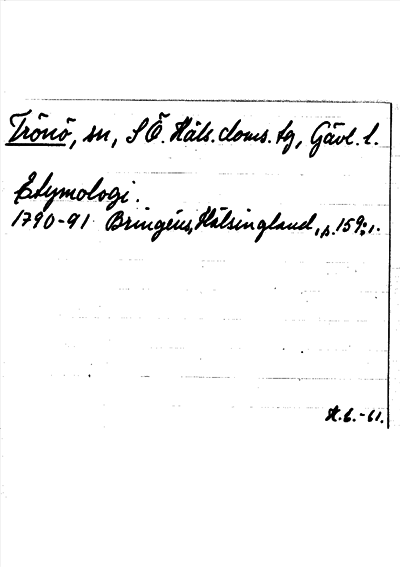 Trönö, sn, S Ö. Häls. doms. tg, Gävl. l.
Etymologi.
1790-91 Bringéus, Hälsingland, p. 159:1.
H.6.-61.